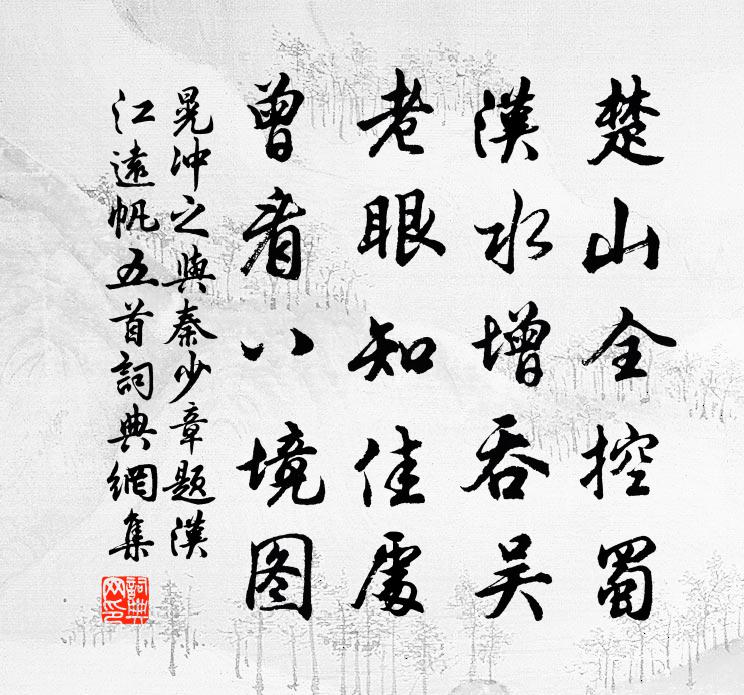 楚山全控蜀
漢水增吞吴
老眼知佳處
曾看八境图
晁冲之與秦少章題漢
江遠帆五首詞典網集
詞典網印